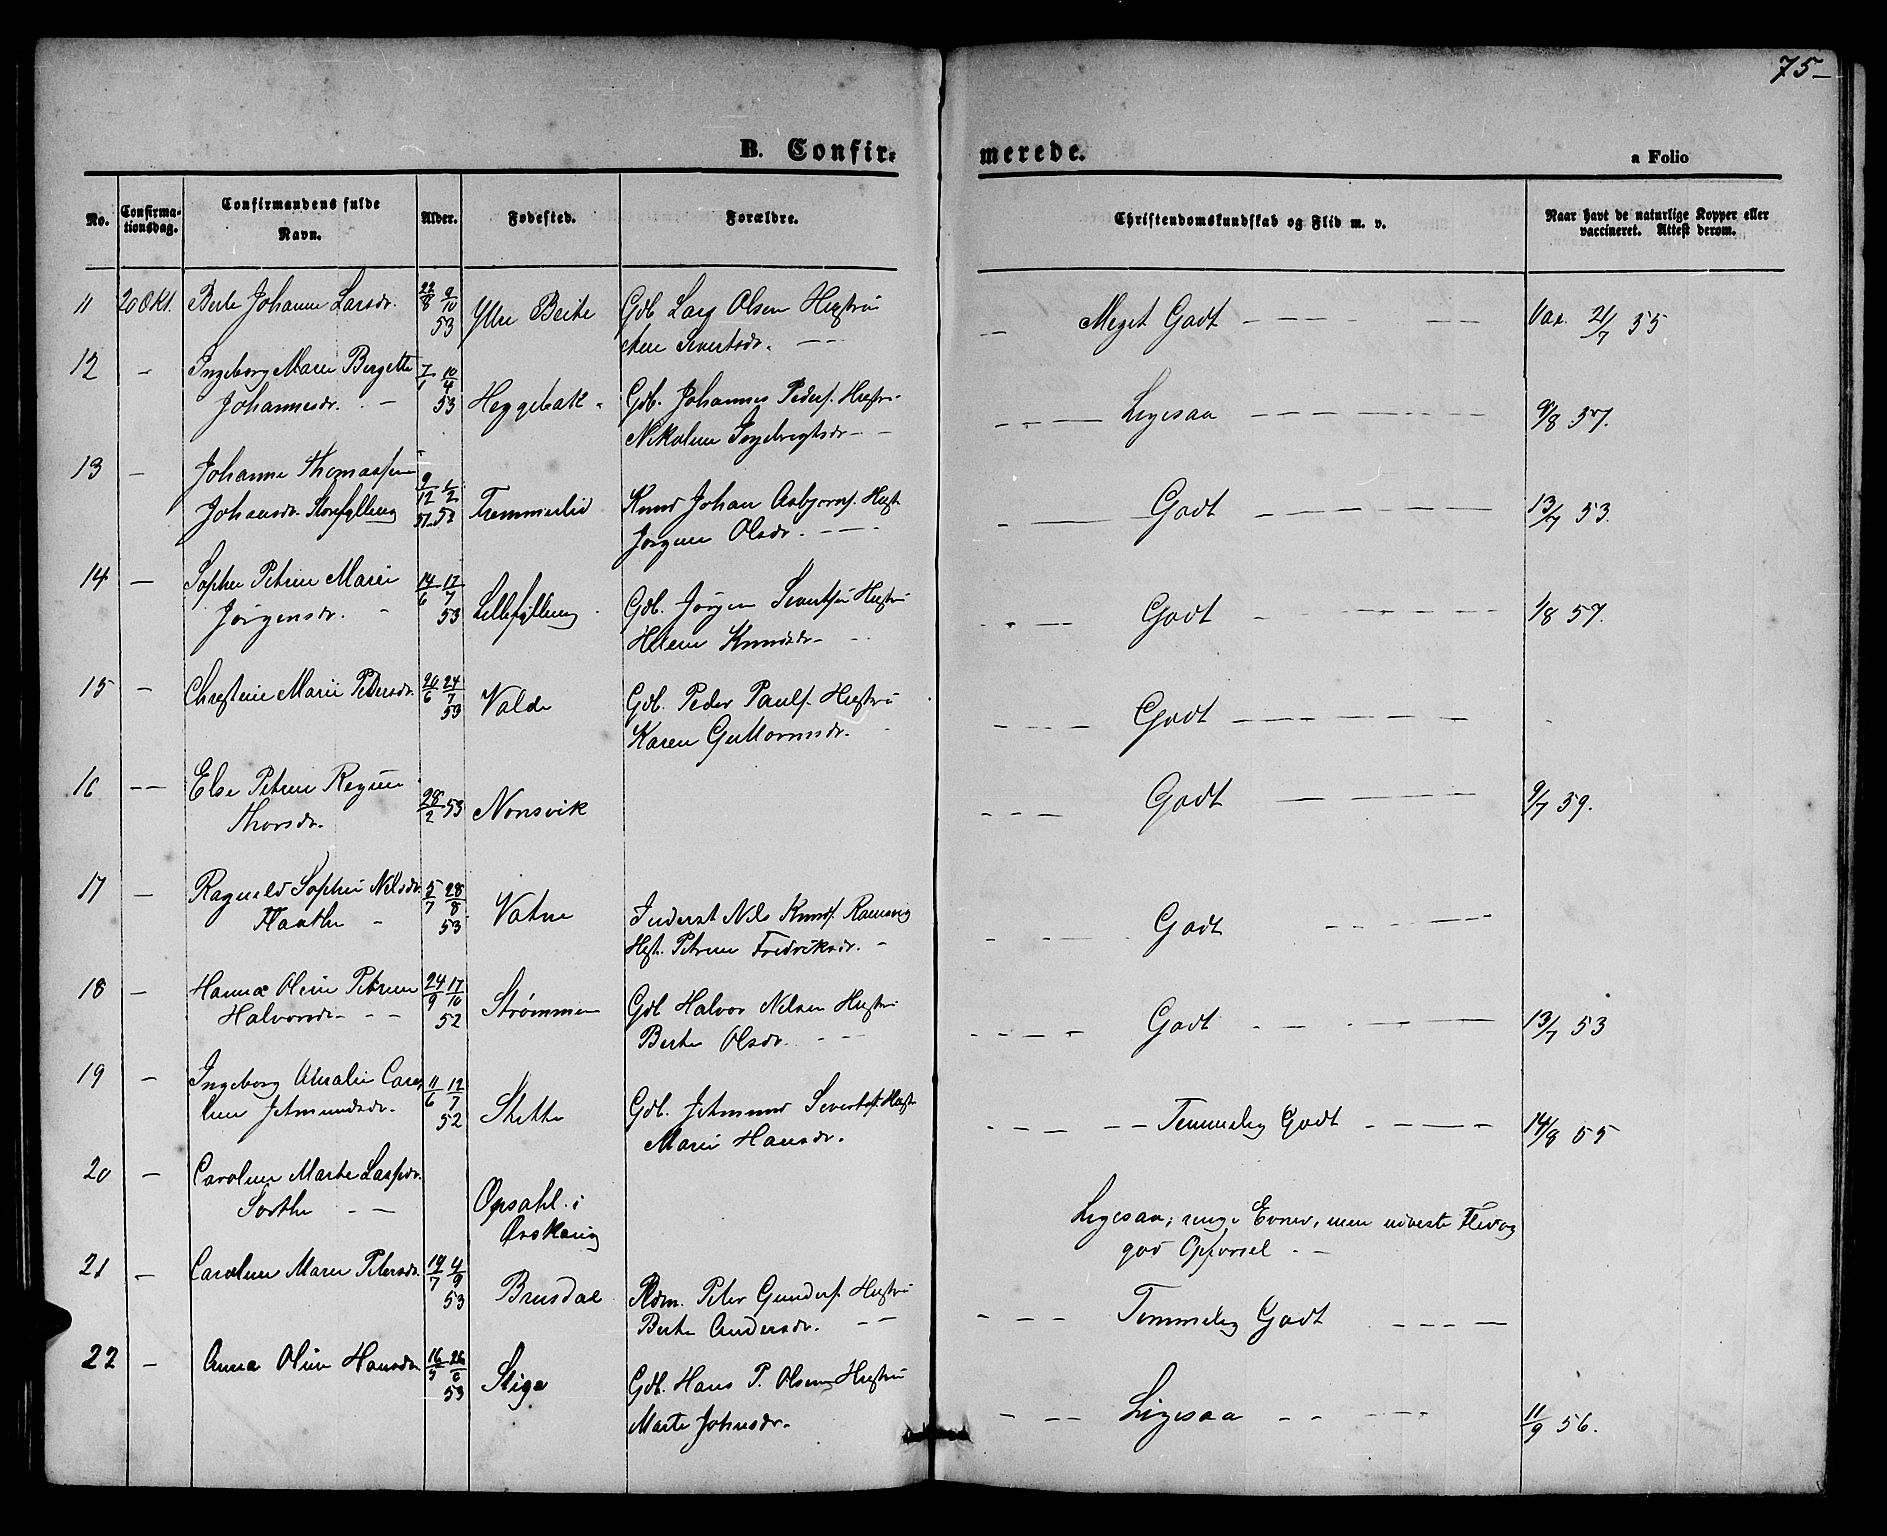 75-
B. Confir-
merede.
a Folio
No.
Confirma-
tionsdag.
Confirmandens fulde
Navn.
Alder.
Fødested.
Forældre.
Christendomskundskab og Flid m. v.
Naar havt de naturlige Kopper eller
vaccineret. Attest derom.
11 20 Okt. Berte Johanne Larsdr. 22/8 9/10 53 Ytre Beite Gdb Lars Olsen Hustru
Sivertsdr. - -
- Meget Godt - - - - - - Vax. 21/7 55
12 - Ingeborg Marie Bergitte
Johannesdr. - 7/1 10/4 53 Heggebakk - Gdb. Johannes Peders. Hustr.
Nikoline Ingebrigtsdr - -
- - - - Ligesaa - - - - - - 9/8 57.
13 - Johanne Thomassine
Johansdr. Storfylling 9/12 51 1/2 52 Tremmerlid Knud Johan Asbjørns. Hust
Jørgine Olsdr. - - -
- - Godt - - - - - - 13/7 53.
14 - Sophie Petrine Marie
Jørgensdr. - 14/6 17/7 53 Lillefylling Gdb. Jørgen Sivertsen Hustru
Helene Knudsdr - - -
- - - Godt - - - - - - 1/8 57.
15 - Christine Marie Pedersdr. 20/6 24/7 53 Valde Gdb. Peder Pauls. Hustru
Karen Guttormsdr.
- - - - Godt - - - - - -
16 - - Else Petrine Regine
Thorsdr. 28/2 53 Nonsvik
- - - Godt - - - - - 9/7 59.
17 - Ragnild Sophie Nilsdr.
- 5/7 28/8 53 Vatne Inderst Nils Knuds. Ramsvig
Hust. Petrine Fredriksdr. -
- - - Godt - - - - -
18 - Hanna Oline Petrine
Halvorsdr - - - 24/9 17/10 52 Strømmen Gdb Halvor Nilsen Hustru
Berte Olsdr. - - -
- - - - Godt - - - - - 13/7 53
19 - Ingeborg Amalie Caro-
line Jetmundsdr. 11/6 12/7 52 Slette Gdb. Jetmund Siverts. Hust.
Marie Hansdr.
- - - - - - Temmelig Godt - - - - - 14/8 55
20 - Caroline Marte Larsdr.
- - Opsahl i
Ørskoug
Ligesaa; ringe Evner, men udviste Flid og
god Opførsel - -
21 - Caroline Marie Petersdr. 19/7 4/9 53 Brusdal Rdm. Peter Gunders. Hustru
Berte Andersdr. - -
- - - - Temmelig Godt - - - -
22 - Anna Oline Hansdr. 16/5 26/6 53 Stige Gdb. Hans P. Olsen Hustru
Marte Johnsdr.
- - - Ligesaa - - - - - 11/9 56.